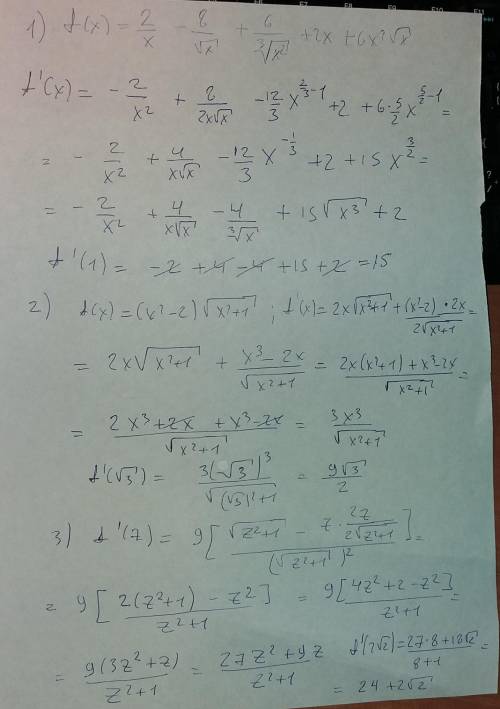 1) f(x) = 2/x - 8/√x + 6/∛x² + 2x + 6x²√x
f'(x) = - 2/x² + 8/2x√x - 12/3 x^(2/3-1) + 2 + 6·5/2 x^(5/2-1) =
= - 2/x² + 4/x√x - 12/3 x^(-1/3) + 2 + 15x^(3/2) =
= - 2/x² + 4/x√x - 4/∛x + 15√x³ + 2
f'(1) = -2 + 4 - 4 + 15 + 2 = 15
2) f(x) = (x²-2)√x²+1 ; f'(x) = 2x√x²+1 + (x²-2)·2x/2√x²+1 =
= 2x√x²+1 + x³-2x/√x²+1 = 2x(x²+1)+x³-2x/√x²+1 =
= 2x³+2x+x³-2x/√x²+1 = 3x³/√x²+1
f'(√3) = 3(√3)³/√(√3)²+1 = 9√3/2
3) f'(z) = 9[√z²+1 - z·2z/2√z²+1/(√z²+1)²] =
= 9[2(z²+1) - z²]/z²+1 = 9[4z²+2-z²]/z²+1 =
= 9(3z²+z)/z²+1 = 27z²+9z/z²+1 f'(2√2) = 27·8+18√2/8+1 =
= 24+2√2